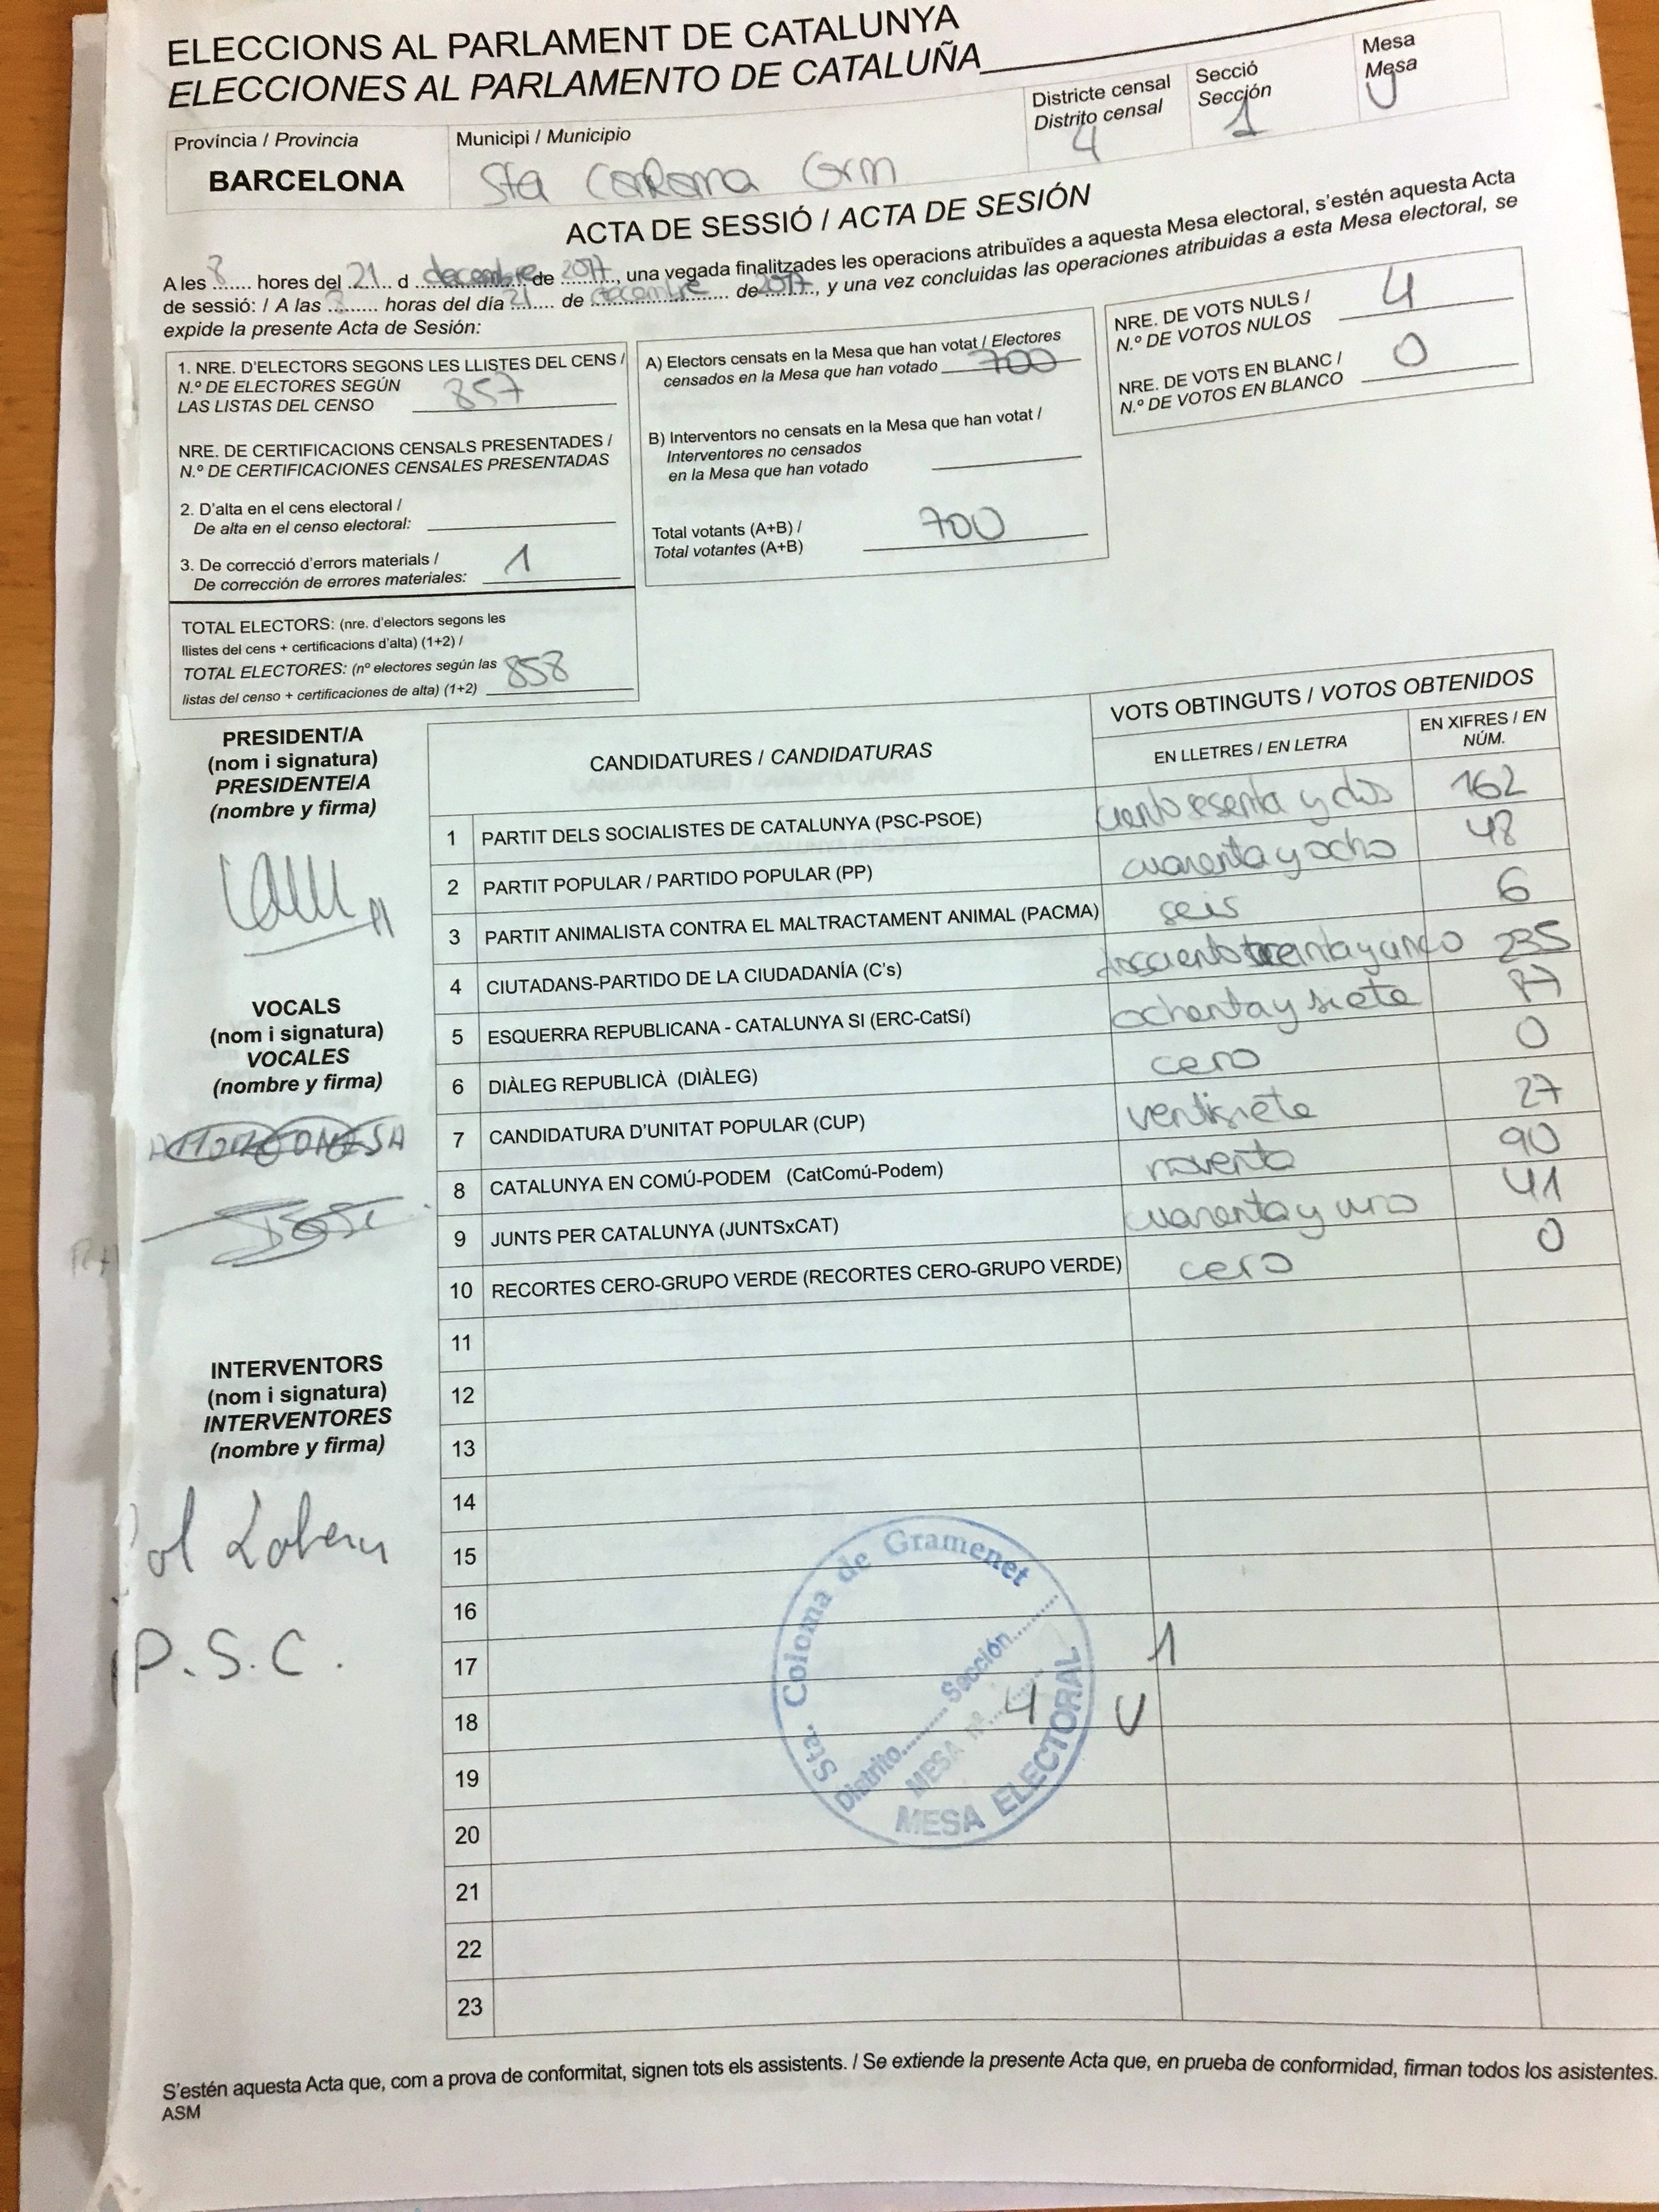 ELECCIONS AL PARLAMENT DE CATALUNYA
ELECCIONES AL PARLAMENTO DE CATALUÑA
Província / Provincia
BARCELONA
Municipi / Municipio
Sta Coloma Grm
Districte censal
Distrito censal
4
Secció
Sección
1
Mesa
Mesa
U
ACTA DE SESSIÓ / ACTA DE SESIÓN
A les 8 hores del 21 d decembre de 2017, una vegada finalitzades les operacions atribuïdes a aquesta Mesa electoral, s'estén aquesta Acta
de sessió: / A las 8 horas del día 21 de decembre de 2017, y una vez concluidas las operaciones atribuidas a esta Mesa electoral, se
expide la presente Acta de Sesión:
1. NRE. D'ELECTORS SEGONS LES LLISTES DEL CENS /
N.º DE ELECTORES SEGÚN
LAS LISTAS DEL CENSO 857
NRE. DE CERTIFICACIONS CENSALS PRESENTADES /
N.º DE CERTIFICACIONES CENSALES PRESENTADAS
2. D'alta en el cens electoral /
De alta en el censo electoral:
3. De correcció d'errors materials /
De corrección de errores materiales: 1
TOTAL ELECTORS: (nre. d'electors segons les
llistes del cens + certificacions d'alta) (1+2) /
TOTAL ELECTORES: (nº electores según las
listas del censo + certificaciones de alta) (1+2) 858
A) Electors censats en la Mesa que han votat / Electores
censados en la Mesa que han votado 700
B) Interventors no censats en la Mesa que han votat /
Interventores no censados
en la Mesa que han votado
Total votants (A+B) /
Total votantes (A+B) 700
NRE. DE VOTS NULS /
N.º DE VOTOS NULOS 4
NRE. DE VOTS EN BLANC /
N.º DE VOTOS EN BLANCO 0
PRESIDENT/A
(nom i signatura)
PRESIDENTE/A
(nombre y firma)
VOCALS
(nom i signatura)
VOCALES
(nombre y firma)
INTERVENTORS
(nom i signatura)
INTERVENTORES
(nombre y firma)
P.S.C.
CANDIDATURES / CANDIDATURAS
VOTS OBTINGUTS / VOTOS OBTENIDOS
EN LLETRES / EN LETRA
EN XIFRES / EN
NÚM.
1 PARTIT DELS SOCIALISTES DE CATALUNYA (PSC-PSOE) ciento sesenta y dos 162
2 PARTIT POPULAR / PARTIDO POPULAR (PP) cuarenta y ocho 48
3 PARTIT ANIMALISTA CONTRA EL MALTRACTAMENT ANIMAL (PACMA) seis 6
4 CIUTADANS-PARTIDO DE LA CIUDADANÍA (C's) 235
5 ESQUERRA REPUBLICANA - CATALUNYA SI (ERC-CatSí) ochenta y siete 87
6 DIÀLEG REPUBLICÀ (DIÀLEG) cero 0
7 CANDIDATURA D'UNITAT POPULAR (CUP) ventisiete 27
8 CATALUNYA EN COMÚ-PODEM (CatComú-Podem) noventa 90
9 JUNTS PER CATALUNYA (JUNTSxCAT) cuarenta y uno 41
10 RECORTES CERO-GRUPO VERDE (RECORTES CERO-GRUPO VERDE) cero 0
11
12
13
14
15
16
17
18
19
20
21
22
23
Sta. Coloma de Gramenet
Distrito Sección 1
MESA nº 4 U
MESA ELECTORAL
S'estén aquesta Acta que, com a prova de conformitat, signen tots els assistents. / Se extiende la presente Acta que, en prueba de conformidad, firman todos los asistentes.
ASM